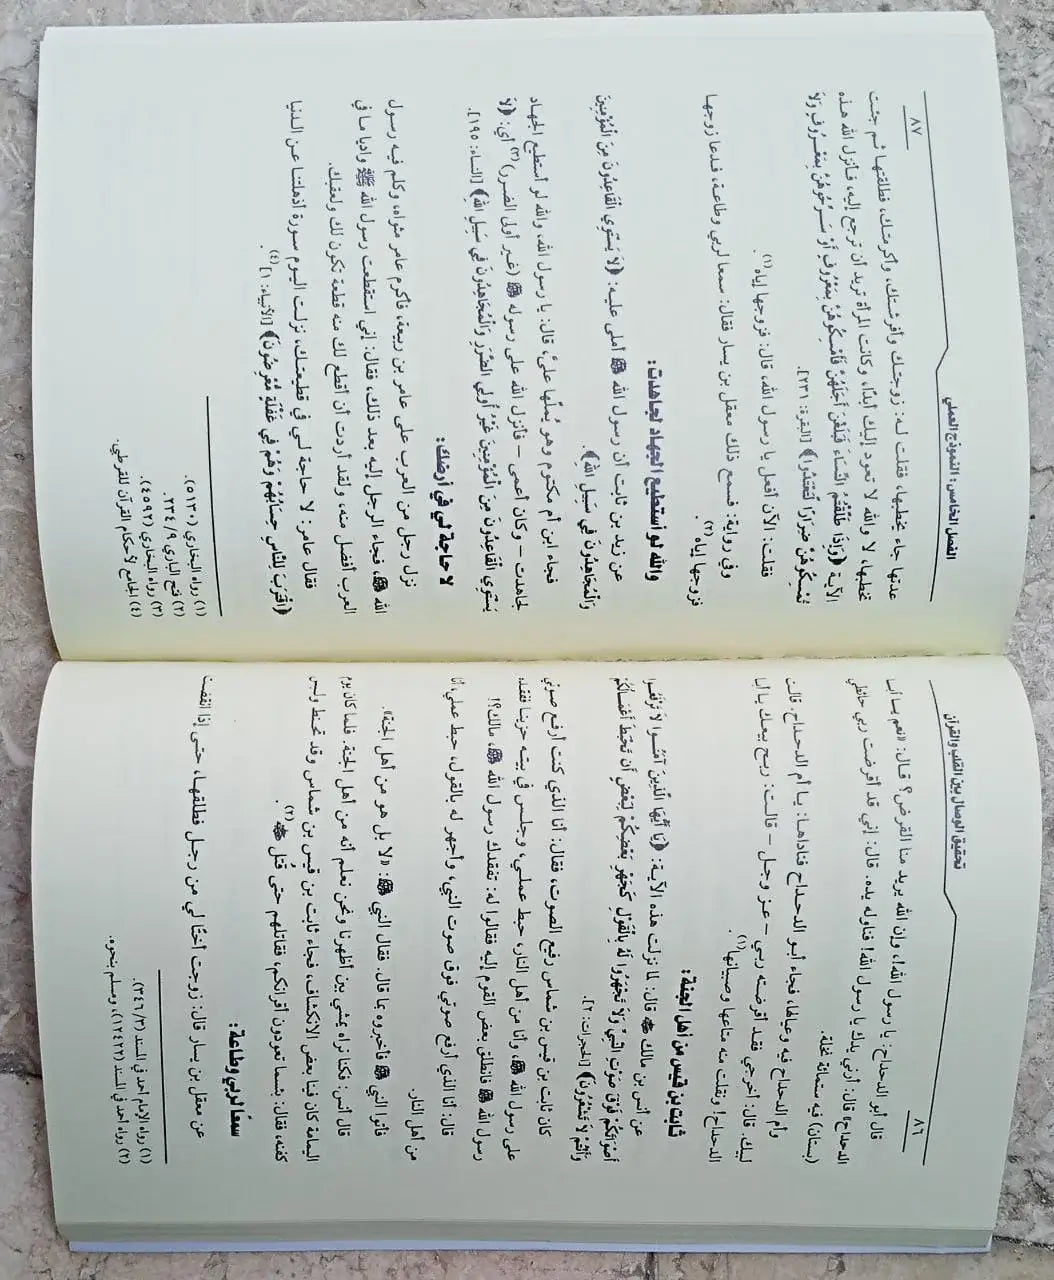 تحقيق الوصال بين القلب والقرآن
٨٦
قال أبو الدحداح: يا رسول الله!، وإن الله يريد منا القرض؟ قال: «نعم يا أبا
الدحداح» قال: أرني يدك يا رسول الله! فناوله يده. قال: إني قد أقرضت ربي حائطي
(بستان) فيه ستمائة نخلة.
وأم الدحداح فيه وعيالها، فجاء أبو الدحداح فناداها: يا أم الدحداح. قالت
لبيك. قال: أخرجي فقد أقرضته ربي – عز وجل – قالت: ربح بيعك يا أبا
الدحداح! ونقلت منه متاعها وصبيانها(١).
ثابت بن قيس من أهل الجنة:
عن أنس بن مالك ﷺ قال: لما نزلت هذه الآية: ﴿يَا أَيُّهَا الَّذِينَ آمَنُوا لَا تَرْفَعُوا
أَصْوَاتَكُمْ فَوْقَ صَوْتِ النَّبِيِّ وَلَا تَجْهَرُوا لَهُ بِالْقَوْلِ كَجَهْرِ بَعْضِكُمْ لِبَعْضٍ أَن تَحْبَطَ أَعْمَالُكُمْ
وَأَنتُمْ لَا تَشْعُرُونَ﴾ [الحجرات: ٢].
كان ثابت بن قيس بن شماس رفيع الصوت، فقال: أنا الذي كنت أرفع صوتي
على رسول الله ﷺ، وأنا من أهل النار، حبط عملي، وجلس في بيته حزينا ففقده
رسول الله ﷺ فانطلق بعض القوم إليه فقالوا له: تفقدك رسول الله ﷺ، مالك؟!
قال: أنا الذي أرفع صوتي فوق صوت النبي، وأجهر له بالقول، حبط عملي، أنا
من أهل النار.
فأتوا النبي ﷺ فأخبروه بما قال. فقال النبي ﷺ: «لا بل هو من أهل الجنة».
قال أنس: فكنا نراه يمشي بين أظهرنا ونحن نعلم أنه من أهل الجنة. فلما كان يوم
اليمامة كان فينا بعض الانكشاف، فجاء ثابت بن قيس بن شماس وقد تحنط ولبس
كفنه، فقال: بئسما تعودون أقرانكم، فقاتلهم حتى قُتل (٢).
سمعًا لربي وطاعة:
عن معقل بن يسار قال: زوجت أختًا لي من رجل فطلقها، حتى إذا انقضت
(١) رواه الإمام أحمد في المسند (٣/ ٣٤٦).
(٢) رواه أحمد في المسند (١٢٤٢٢)، ومسلم بنحوه.
الفصل الخامس: النموذج العملي
٨٧
عدتها جاء يخطبها، فقلت له: زوجتك وأفرشتك، وأكرمتك، فطلقتها ثم جئت
تخطبها، لا والله لا تعود إليك أبدًا، وكانت المرأة تريد أن ترجع إليه، فأنزل الله هذه
الآية ﴿وَإِذَا طَلَّقْتُمُ النِّسَاءَ فَبَلَغْنَ أَجَلَهُنَّ فَأَمْسِكُوهُنَّ بِمَعْرُوفٍ أَوْ سَرِّحُوهُنَّ بِمَعْرُوفٍ وَلَا
تُمْسِكُوهُنَّ ضِرَارًا لِّتَعْتَدُوا﴾ [البقرة: ٢٣١].
فقلت: الآن أفعل يا رسول الله، قال: فزوجها إياه(١).
وفي رواية: فسمع ذلك معقل بن يسار فقال: سمعا لربي وطاعة، فدعا زوجها
فزوجها إياه(٢).
والله لو أستطيع الجهاد لجاهدت:
عن زيد بن ثابت أن رسول الله ﷺ أملى عليه: ﴿لَا يَسْتَوِي الْقَاعِدُونَ مِنَ الْمُؤْمِنِينَ
وَالْمُجَاهِدُونَ فِي سَبِيلِ اللهِ﴾.
فجاء ابن أم مكتوم وهو يُملّها عليّ، قال: يا رسول الله، والله لو أستطيع الجهاد
لجاهدت – وكان أعمى – فأنزل الله على رسوله ﷺ (غير أولي الضرر)(٣) أي: ﴿لَا
يَسْتَوِي الْقَاعِدُونَ مِنَ الْمُؤْمِنِينَ غَيْرُ أُولِي الضَّرَرِ وَالْمُجَاهِدُونَ فِي سَبِيلِ اللهِ﴾ [النساء: ٩٥].
لا حاجة لي في أرضك:
نزل رجل من العرب على عامر بن ربيعة، فأكرم عامر مثواه، وكلم فيه رسول
الله ﷺ، فجاء الرجل إليه بعد ذلك، فقال: إني استقطعت رسول الله ﷺ واديا ما في
العرب أفضل منه، ولقد أردت أن أقطع لك منه قطعة تكون لك ولعقبك.
فقال عامر: لا حاجة لي في قطيعتك، نزلت اليوم سورة أذهلتنا عن الدنيا
﴿اقْتَرَبَ لِلنَّاسِ حِسَابُهُمْ وَهُمْ فِي غَفْلَةٍ مُّعْرِضُونَ﴾ [الأنبياء: ١](٤).
(١) رواه البخاري (٥١٣٠).
(٢) فتح الباري ٩/ ٢٣٤.
(٣) رواه البخاري (٤٥٩٢).
(٤) الجامع لأحكام القرآن للقرطبي.